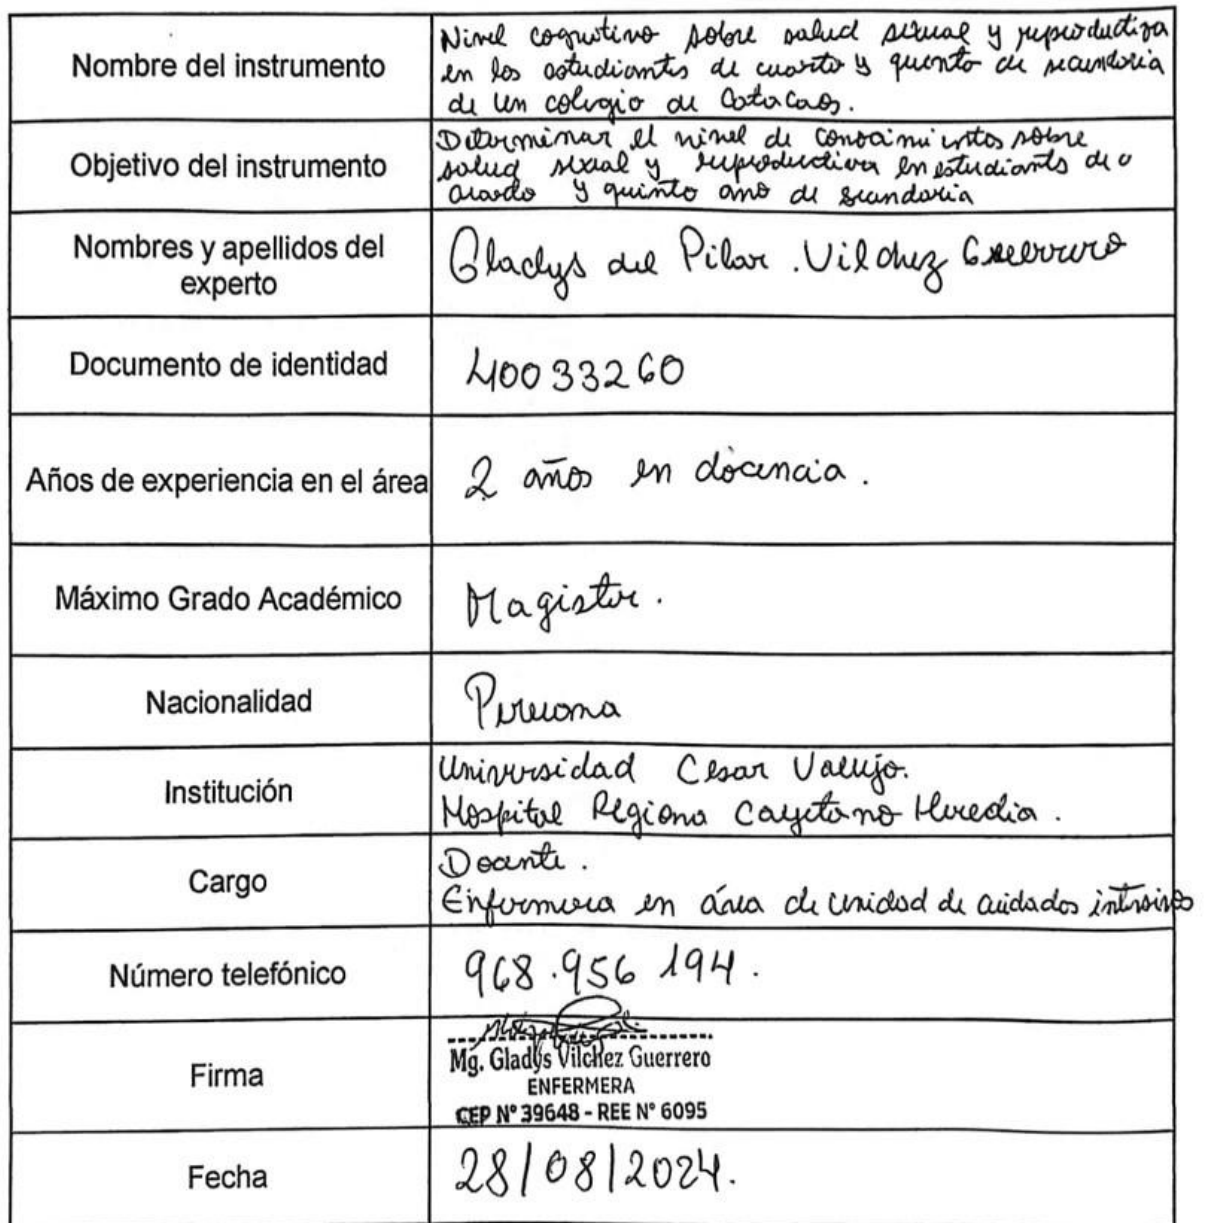 Nombre del instrumento
Nivel cognitivo sobre salud sexual y reproductiva
en los estudiantes de cuarto y quinto de secundaria
de un colegio de Catacaos.
Objetivo del instrumento
Determinar el nivel de conocimientos sobre
salud sexual y reproductiva en estudiantes de
y quinto ano de secundaria
Nombres y apellidos del
experto
Gladys del Pilar. Vilchez Guerrero
Documento de identidad
40033260
Años de experiencia en el área
2 años en docencia.
Máximo Grado Académico
Magister.
Nacionalidad
Peruana
Institución
Universidad Cesar Vallejo.
Hospital Regiona Cayetano Heredia.
Cargo
Docente.
Enfermera en área de unidad de cuidados intensivos
Número telefónico
968.956 194.
Firma
Mg. Gladys Vilchez Guerrero
ENFERMERA
CEP N° 39648 - REE N° 6095
Fecha
28/08/2024.